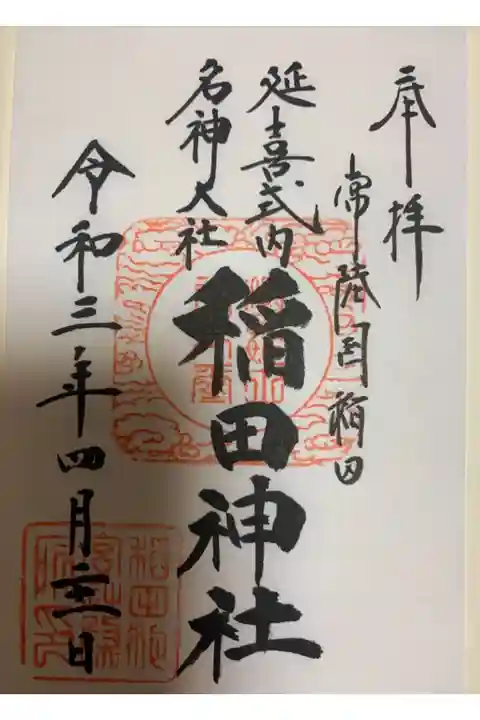 奉拝
常陸国稲田
延喜式内
名神大社
稲田神社
令和三年四月二十三日